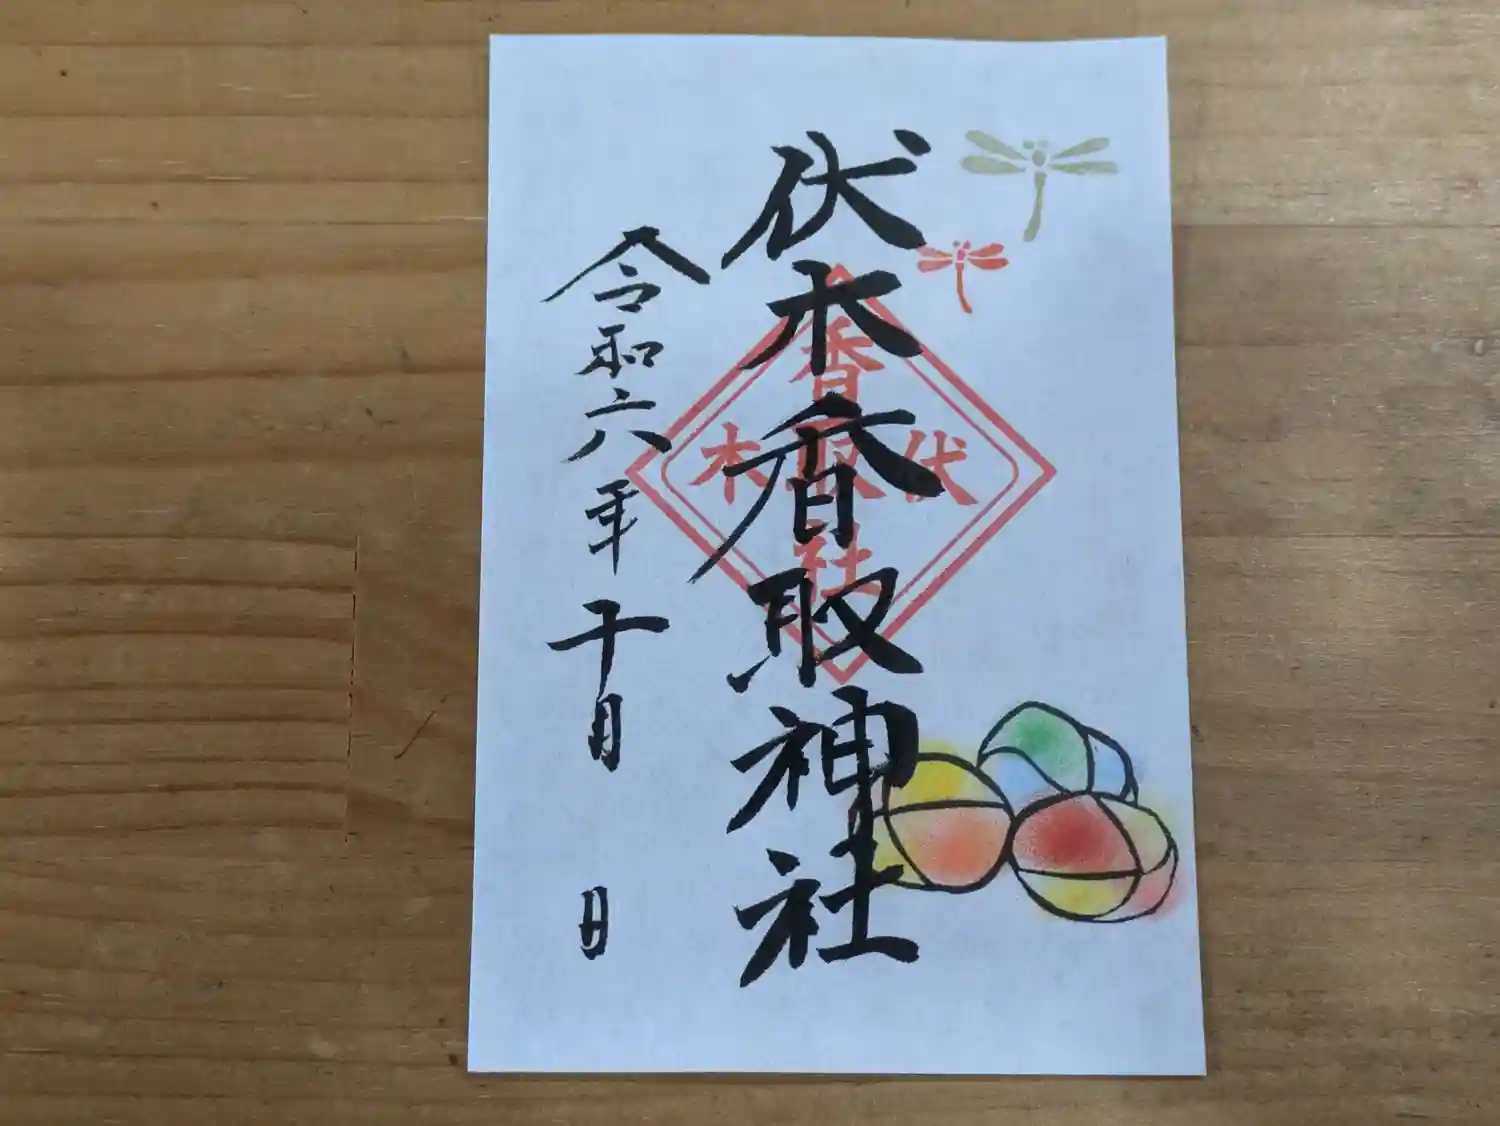 伏木香取神社
香取社
伏木
令和六年十月 日